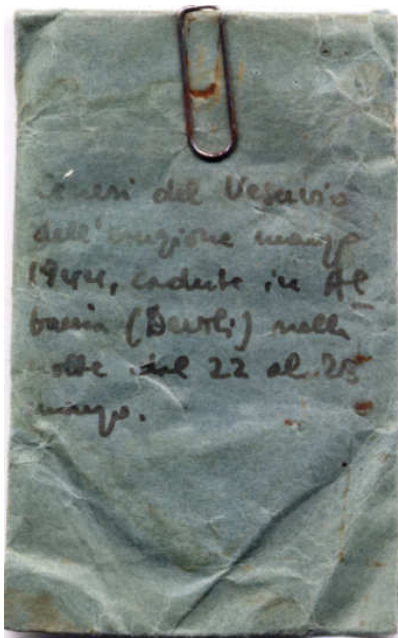 Ceneri del Vesuvio
dell'eruzione marzo
1944, cadute in Al
bania (Devoli) nella
notte dal 22 al 23
marzo.